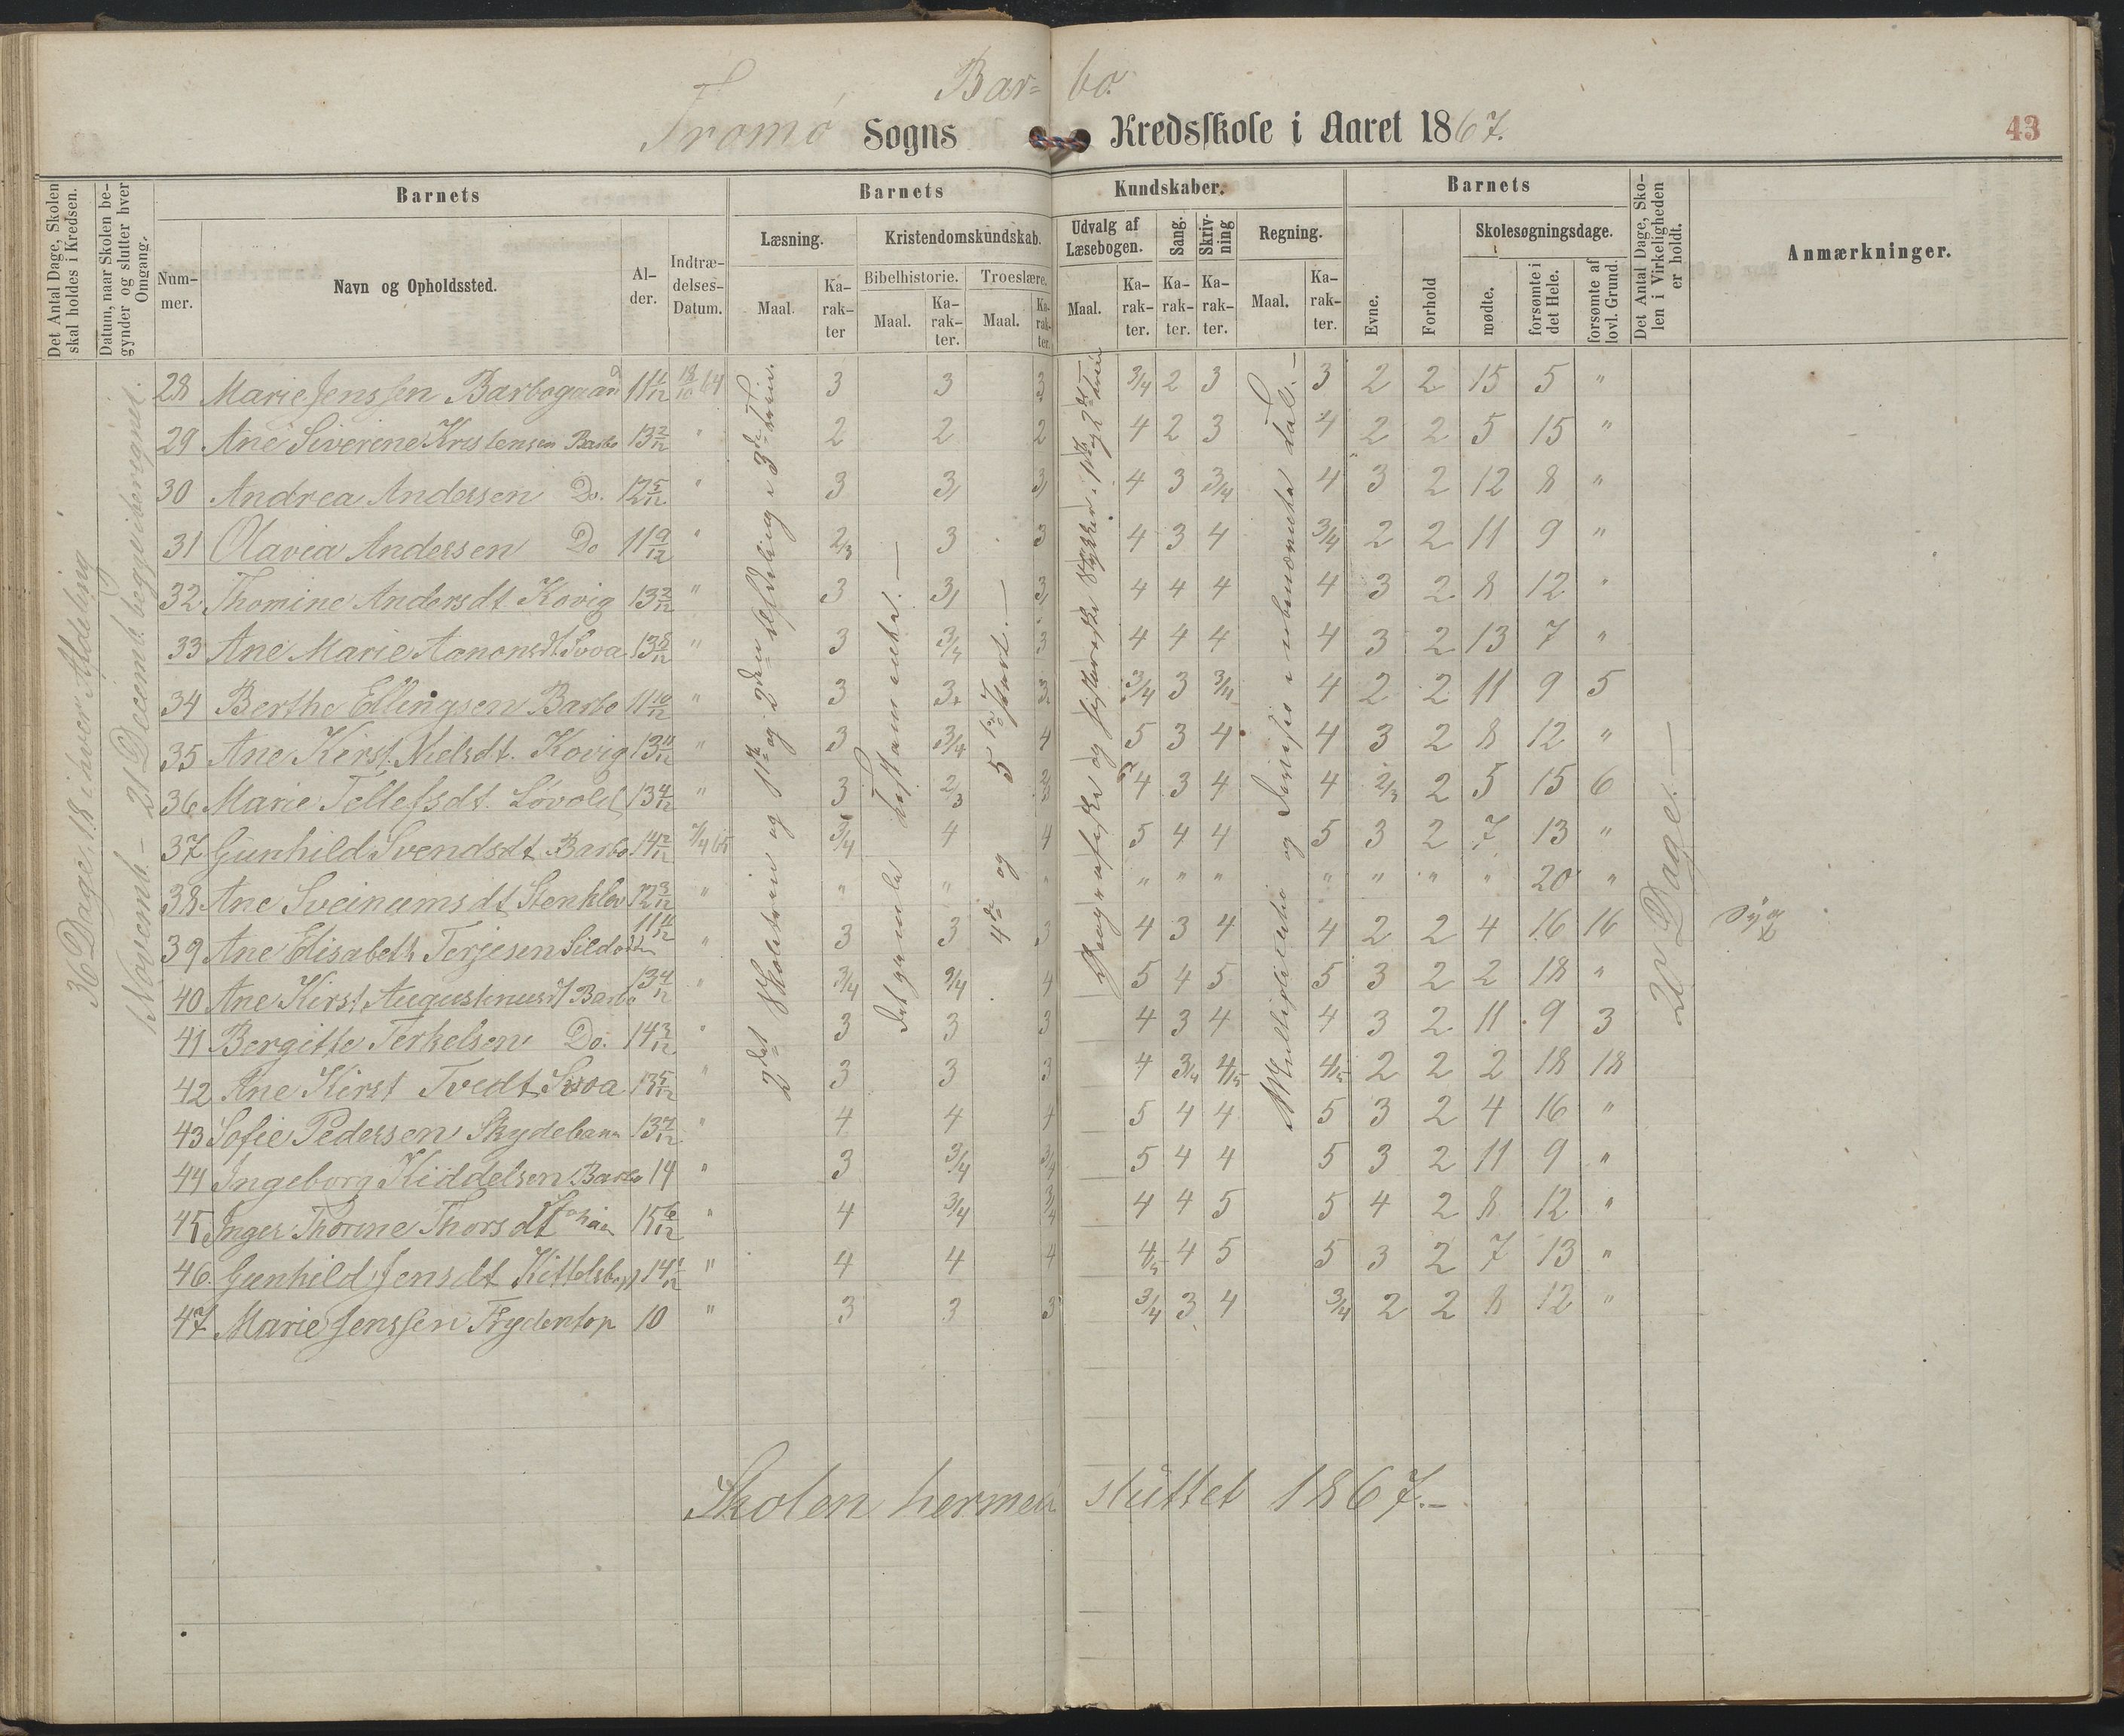 Bar= bo.
Tromø Sogns Kredsskole i Aaret 1867.
43
Det Antal Dage, Skolen skal holdes i Kredsen.
Datum, naar Skolen begynder og slutter hver Omgang.
Barnets
Num-mer.
Navn og Opholdssted.
Al-der.
Indtræ-delses-Datum.
Barnets Kundskaber.
Læsning.
Maal.
Ka-rak-ter
Kristendomskundskab.
Bibelhistorie.
Maal.
Ka-rak-ter.
Troeslære.
Maal.
Ka-rak-ter.
Udvalg af Læsebogen.
Maal.
Ka-rak-ter.
Sang.
Ka-rak-ter.
Skriv-ning
Ka-rak-ter.
Regning.
Maal.
Ka-rak-ter.
Barnets
Evne.
Forhold
Skolesøgningsdage.
mødte.
forsømte i det Hele.
forsømte af lovl. Grund.
Det Antal Dage, Sko-len i Virkeligheden er holdt.
Anmærkninger.
36 Dage, 18 i hver Afdeling
1 Novemb. – 21 Decemb. begge iberegnet.
2det Skoletrin og 1ste og 2den Afdeling i 3de Trin.
Det gamle Testamente.
4de og 5te Part.
Geografiske og historiske Stykker
20 Dage.
28 Marie Jenssen Barbogaard 11 4/12 18/10 64 3 3 3 3/4 2 3 3 2 2 15 5 "
29 Ane Siverine Kristensen Barbo 13 2/12 " 2 2 2 4 2 3 4 2 2 5 15 "
30 Andrea Andersen Do. 12 5/12 " 3 3 3 4 3 3/4 4 3 2 12 8 "
31 Olavia Andersen Do 11 9/12 " 2/3 3 3 4 3 4 3/4 2 2 11 9 "
32. Thomine Andersdt. Kovig 13 2/12 " 3 3 3 4 4 4 4 3 2 8 12 "
33 Ane Marie Aanonsdt Svoa 13 8/12 " 3 3/4 3 4 4 4 4 3 2 13 7 "
34 Berthe Ellingsen Barbo 11 10/12 " 3 3 3 3/4 3 3/4 4 2 2 11 9 5
35 Ane Kirst. Nielsdt. Kovig 13 11/12 " 3 3/4 4 5 3 4 4 3 2 8 12 "
36 Marie Tellefsdt. Løvold 13 4/12 " 3 2/3 2/3 4 3 4 4 2/3 2 5 15 6
37 Gunhild Svendsdt Barbo 14 2/12 7/4 65 3/4 4 4 5 4 4 5 3 2 7 13 "
38 Ane Sveinumsdt Stenklev 12 3/12 " " " " " " " " " " " 20 "
39 Ane Elisabeth Terjesen 11 11/12 " 3 3 3 4 3 4 4 2 2 4 16 16 Syg
40 Ane Kirst. Augustinusdt Barbo 13 4/12 " 3/4 3/4 4 5 4 5 5 3 2 2 18 "
41 Bergitte Terkelsen Do. 14 3/12 " 3 3 3 4 3 4 4 3 2 11 9 3
42 Ane Kirst Tvedt Svoa 13 5/12 " 3 3 3 4 3/4 4/5 4/5 2 2 2 18 18
43 Sofie Pedersen Skydebann 13 7/12 " 4 4 4 5 4 4 5 3 2 4 16 "
44 Ingeborg Kiddelsen Barbo 14 " 3 3/4 3/4 5 4 4 5 3 2 11 9 "
45 Inger Thomine Thorsdt 15 6/12 " 4 3/4 3/4 4 4 5 5 4 2 8 12 "
46. Gunhild Jensdt 14 " 4 4 4 4/5 4 5 5 3 2 7 13 "
47 Marie Jenssen Frydentop 10 " 3 3 3 3/4 3 4 3/4 2 2 8 12 "
Skolen hermed sluttet 1867.–